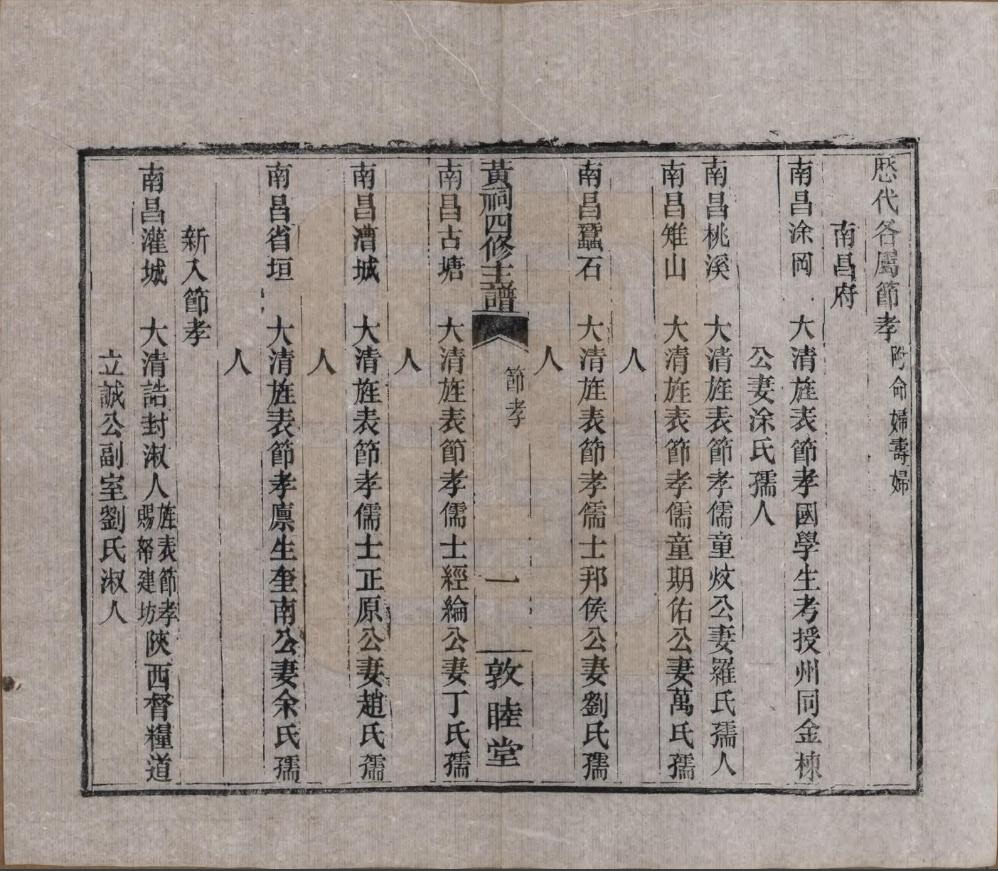 歷代各屬節孝附命婦壽婦
南昌府
南昌涂岡　大清旌表節孝國學生考授州同金棟
公妻涂氏孺人
南昌桃溪　大清旌表節孝儒童炆公妻羅氏孺人
南昌雉山　大清旌表節孝儒童期佑公妻萬氏孺
人
南昌蠶石　大清旌表節孝儒士邦侯公妻劉氏孺
人
黃祠四修主譜　節孝　一　敦睦堂
南昌古塘　大清旌表節孝儒士經綸公妻丁氏孺
人
南昌漕城　大清旌表節孝儒士正原公妻趙氏孺
人
南昌省垣　大清旌表節孝廪生奎南公妻余氏孺
人
新入節孝
南昌灌城　大清誥封淑人旌表節孝賜帑建坊陝西督糧道
立誠公副室劉氏淑人